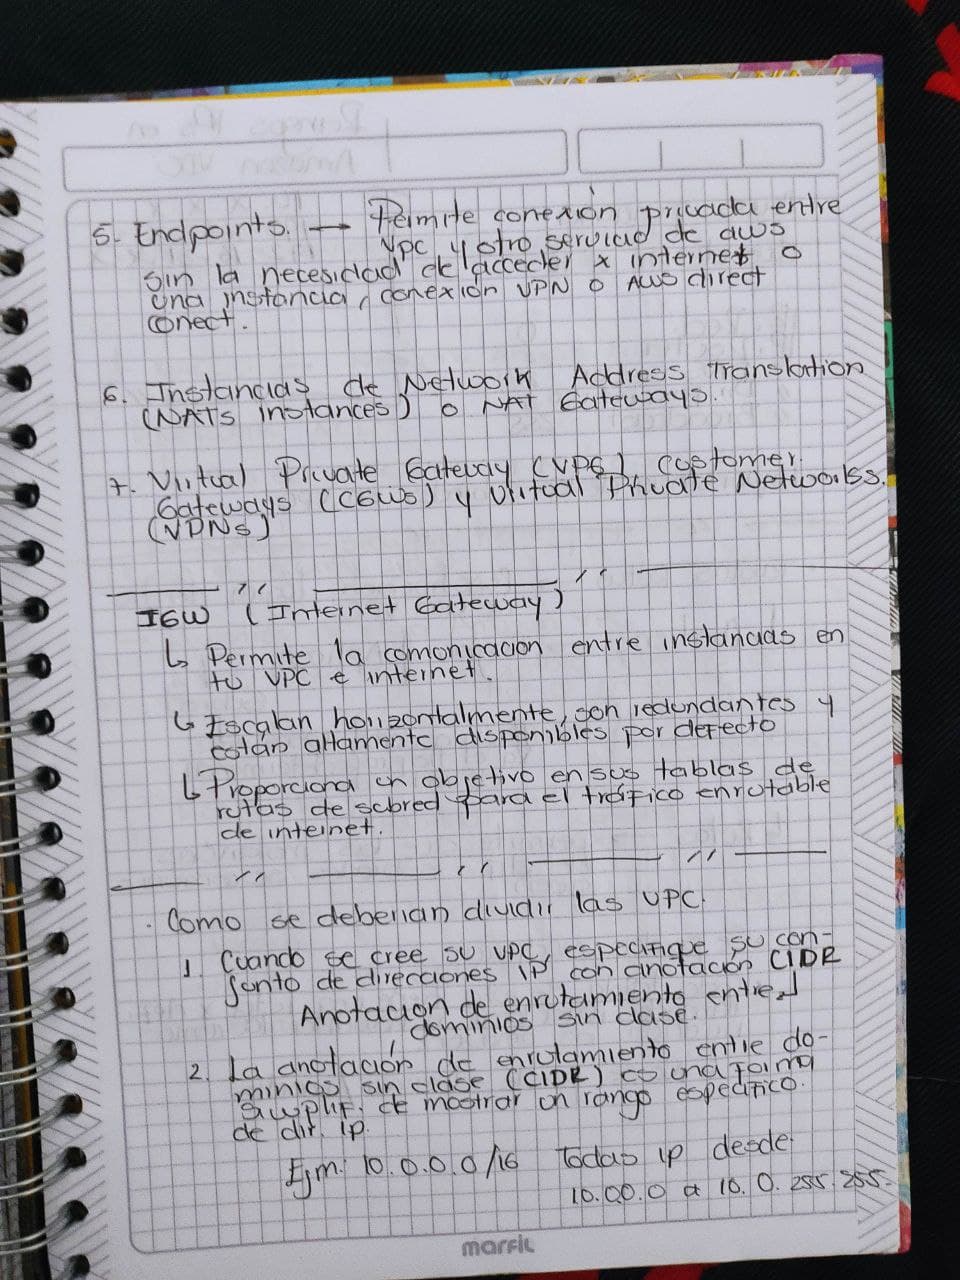 5. Endpoints. → Permite conexión privada entre
VPC y otro serviciao de aws
sin la necesidad de acceder x internet o
una instancia, conexión VPN o AWS direct
conect.
6. Instancias de Network Address Translation
(NATs instances) o NAT Gateways.
7. Virtual Private Gateway (VPG), customer
Gateways (CGWs) y Virtual Private Networks.
(VPNs)
IGW (Internet Gateway)
↳ Permite la comonicacion entre instancias en
tu VPC e internet.
↳ Escalan horizontalmente, son redundantes y
estan altamente disponibles por defecto
↳ Proporciona un objetivo en sus tablas de
rutas de subred para el tráfico enrutable
de internet.
. Como se deberian dividir las VPC.
1. Cuando se cree su VPC, especifique su con-
junto de direcciones IP con anotación CIDR
Anotacion de enrutamiento entre
dominios sin clase.
2. La anotación de enrutamiento entre do-
minios sin clase (CIDR) es una forma
de mostrar un rango especifico.
de dir. ip.
Ejm: 10.0.0.0/16 Todas ip desde
10.00.0 a 10.0.255.255.
marfil